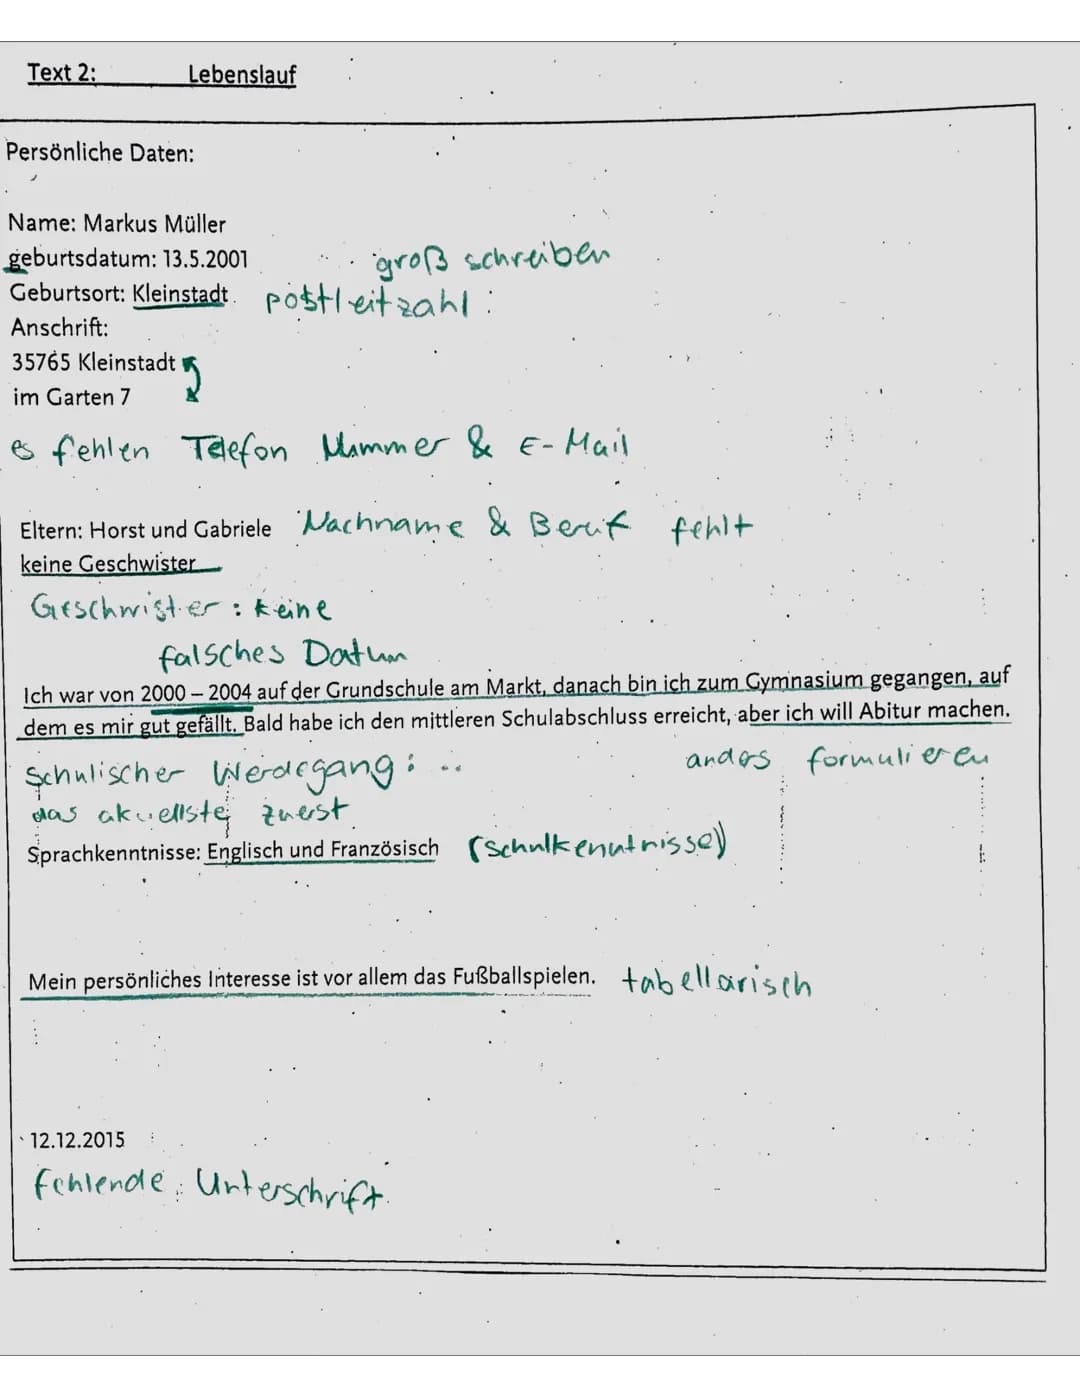 Text 2: Lebenslauf
Persönliche Daten:
Name: Markus Müller
geburtsdatum: 13.5.2001 groß schreiben
Geburtsort: Kleinstadt. postleitzahl:
Anschrift:
35765 Kleinstadt
im Garten 7
es fehlen Telefon Nummer & E-Mail
Eltern: Horst und Gabriele Nachname & Beruf fehlt
keine Geschwister
Geschwister: keine
falsches Datum
Ich war von 2000 – 2004 auf der Grundschule am Markt, danach bin ich zum Gymnasium gegangen, auf
dem es mir gut gefällt. Bald habe ich den mittleren Schulabschluss erreicht, aber ich will Abitur machen.
Schulischer Werdegang: .. anders formulieren
das aktuellste zuerst
Sprachkenntnisse: Englisch und Französisch (Schulkenntnisse)
Mein persönliches Interesse ist vor allem das Fußballspielen. tabellarisch
12.12.2015
fehlende Unterschrift.